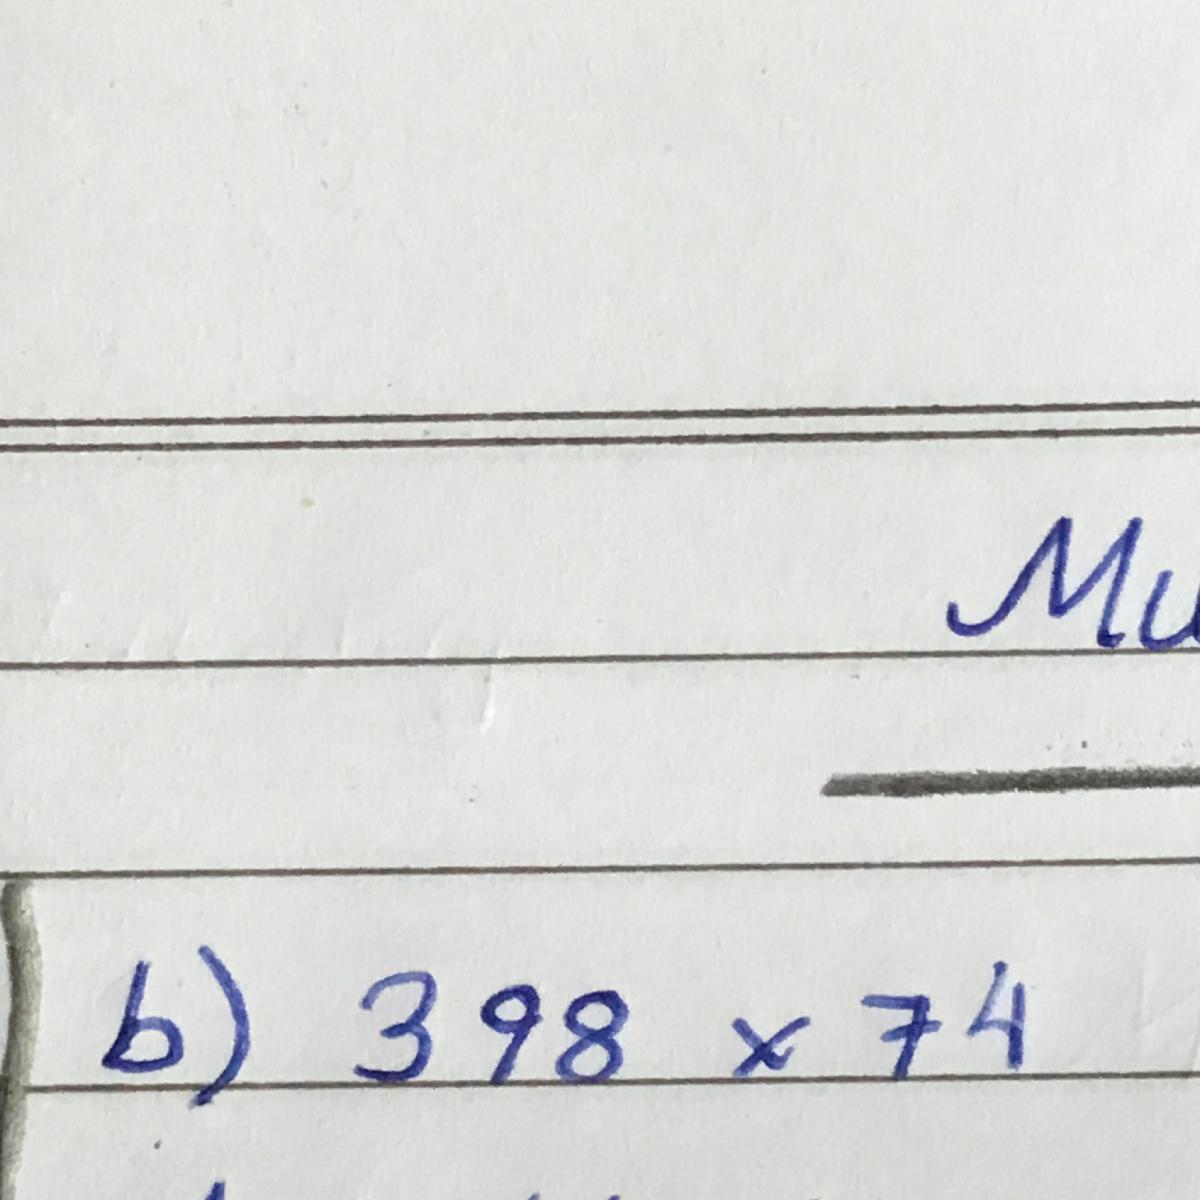 Mu
b) 398 x 74